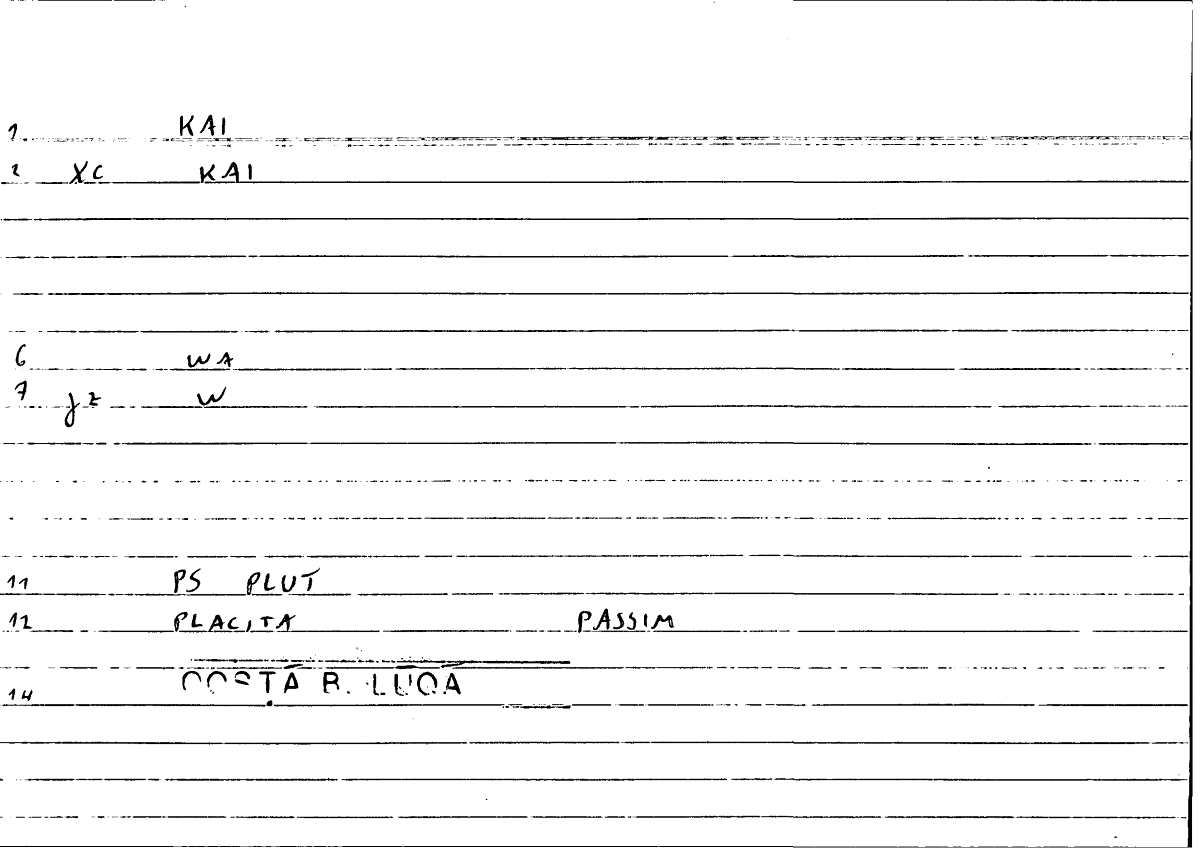 1 KAI
2 XC KAI
6 WA
7 jz W
11 PS PLUT
12 PLACITA PASSIM
14 COSTĀ B. LŪQĀ